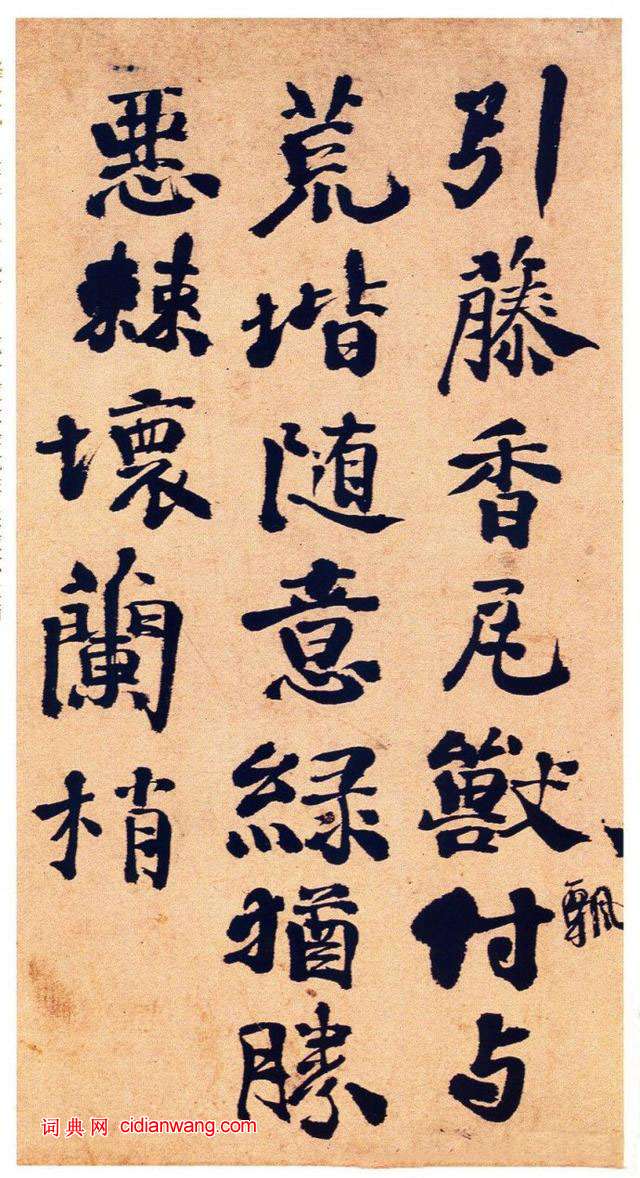 引藤香尾獸付与
飄
荒堦随意緑猶勝
惡棘壞蘭梢
词典网 cidianwang.com